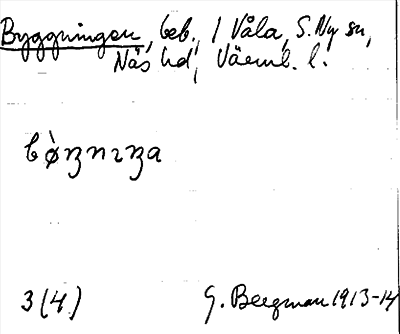 Byggningen, beb., / Våla, S. Ny sn,
Näs hd, Värml. l.
bø̀ꞃnıꞃa
3 (4)
G. Bergman 1913-14